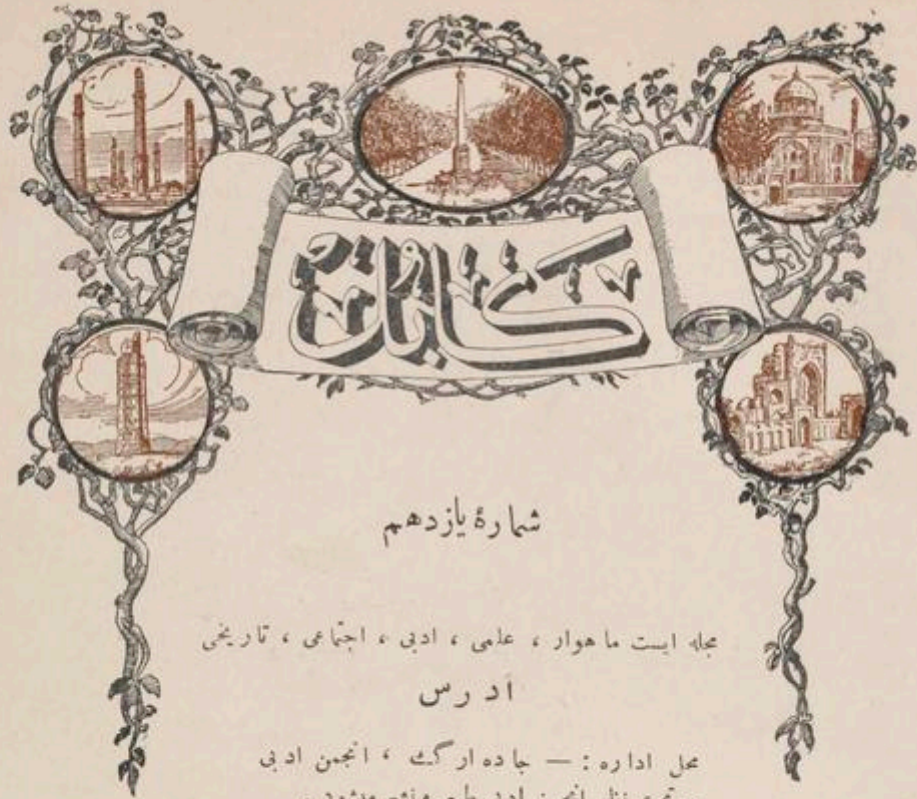 کابل
شمارۀ یازدهم
مجله ایست ماهوار ، علمی ، ادبی ، اجتماعی ، تاریخی
آدرس
محل اداره : — جاده ارگ ، انجمن ادبی
انجمن ادبی طبع